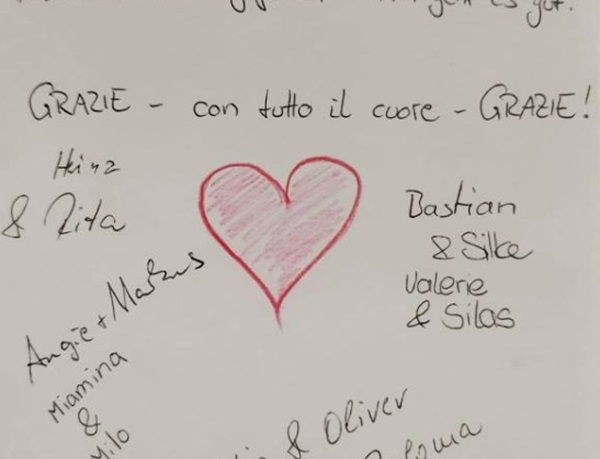 GRAZIE - con tutto il cuore - GRAZIE!
Heinz
& Rita
Bastian
& Silke
Valerie
& Silas
Angie + Markus
Miamina
&
Milo
& Oliver